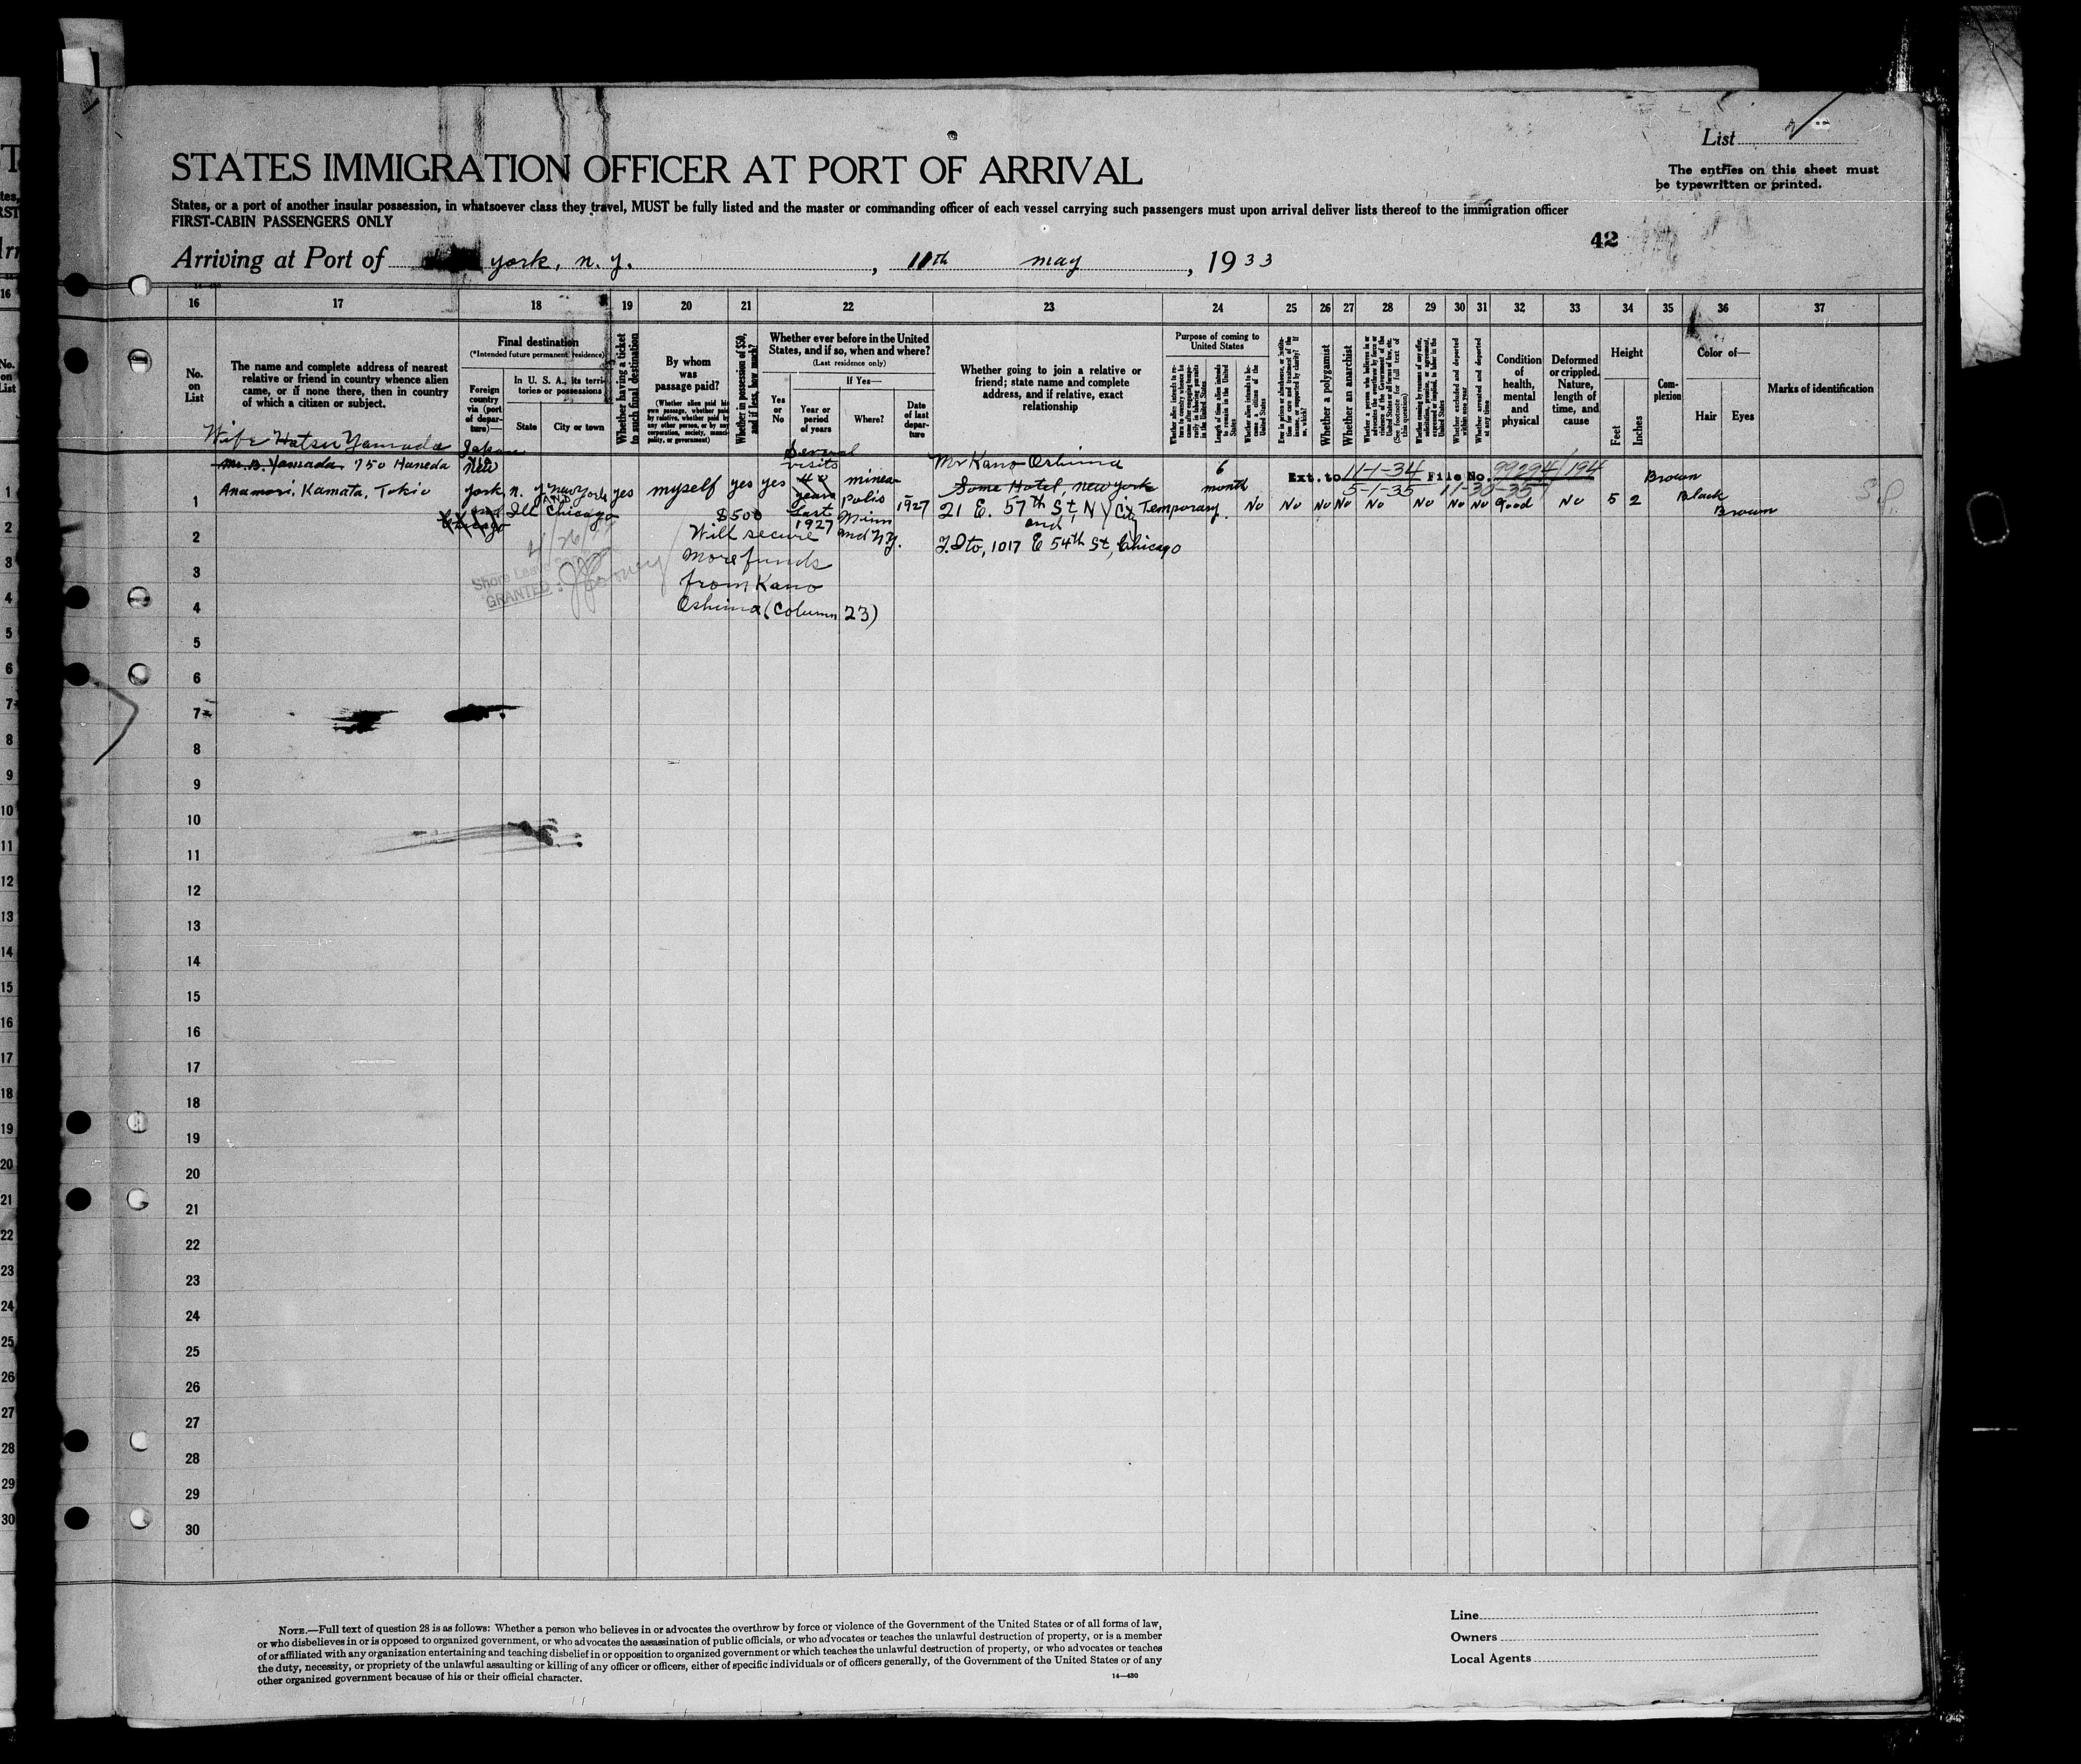 List 2
STATES IMMIGRATION OFFICER AT PORT OF ARRIVAL
The entries on this sheet must
be typewritten or printed.
States, or a port of another insular possession, in whatsoever class they travel, MUST be fully listed and the master or commanding officer of each vessel carrying such passengers must upon arrival deliver lists thereof to the immigration officer
FIRST-CABIN PASSENGERS ONLY
42
Arriving at Port of york, n. y. , 11th may , 1933
16 17 18 19 20 21 22 23 24 25 26 27 28 29 30 31 32 33 34 35 36 37
No. on List
The name and complete address of nearest
relative or friend in country whence alien
came, or if none there, then in country
of which a citizen or subject.
Final destination
(*Intended future permanent residence)
Foreign
country
via (port
of depar-
ture)—
In U. S. A., its terri-
tories or possessions
State
City or town
Whether having a ticket
to such final destination
By whom
was
passage paid?
(Whether alien paid his
own passage, whether paid
by relative, whether paid by
any other person, or by any
corporation, society, munici-
pality, or government)
Whether in possession of $50,
and if less, how much?
Whether ever before in the United
States, and if so, when and where?
(Last residence only)
Yes
or
No
If Yes—
Year or
period
of years
Where?
Date
of last
depar-
ture
Whether going to join a relative or
friend; state name and complete
address, and if relative, exact
relationship
Purpose of coming to
United States
Length of time alien intends
to remain in the United
States
Whether alien intends to be-
come a citizen of the
United States
Whether a polygamist
Whether an anarchist
(See footnote for full text of
this question)
Whether excluded and deported
within one year
Whether arrested and deported
at any time
Condition
of
health,
mental
and
physical
Deformed
or crippled.
Nature,
length of
time, and
cause
Height
Feet
Inches
Com-
plexion
Color of—
Hair
Eyes
Marks of identification
Wife Hatsu Yamada
Mr. B. Yamada 750 Haneda
Anamori, Kamata, Tokio
Japan
New
york n. y New York
and Ill Chicago
Chicago
yes
myself
yes
$500
yes
Several
visits
40
years
Last
1927
minea
polis
Minn
and N.Y.
1927
Mr Kano Oshima
Some Hotel, new york
21 E. 57th St, N Y City
and
T. Ito, 1017 E 54th St, Chicago
6
month
Temporary.
Ext. to 11-1-34 File No. 99294/194
5-1-35 11-30-35
No No No No No No No No Good No 5 2
Brown
Black
Brown
Will secure
more funds
from Kano
Oshima (Column 23)
Shore Leave
GRANTED:
1
2
3
4
5
6
7
8
9
10
11
12
13
14
15
16
17
18
19
20
21
22
23
24
25
26
27
28
29
30
NOTE.—Full text of question 28 is as follows: Whether a person who believes in or advocates the overthrow by force or violence of the Government of the United States or of all forms of law,
or who disbelieves in or is opposed to organized government, or who advocates the assassination of public officials, or who advocates or teaches the unlawful destruction of property, or is a member
of or affiliated with any organization entertaining and teaching disbelief in or opposition to organized government or which teaches the unlawful destruction of property, or who advocates or teaches
the duty, necessity, or propriety of the unlawful assaulting or killing of any officer or officers, either of specific individuals or of officers generally, of the Government of the United States or of any
other organized government because of his or their official character.
14—430
Line
Owners
Local Agents